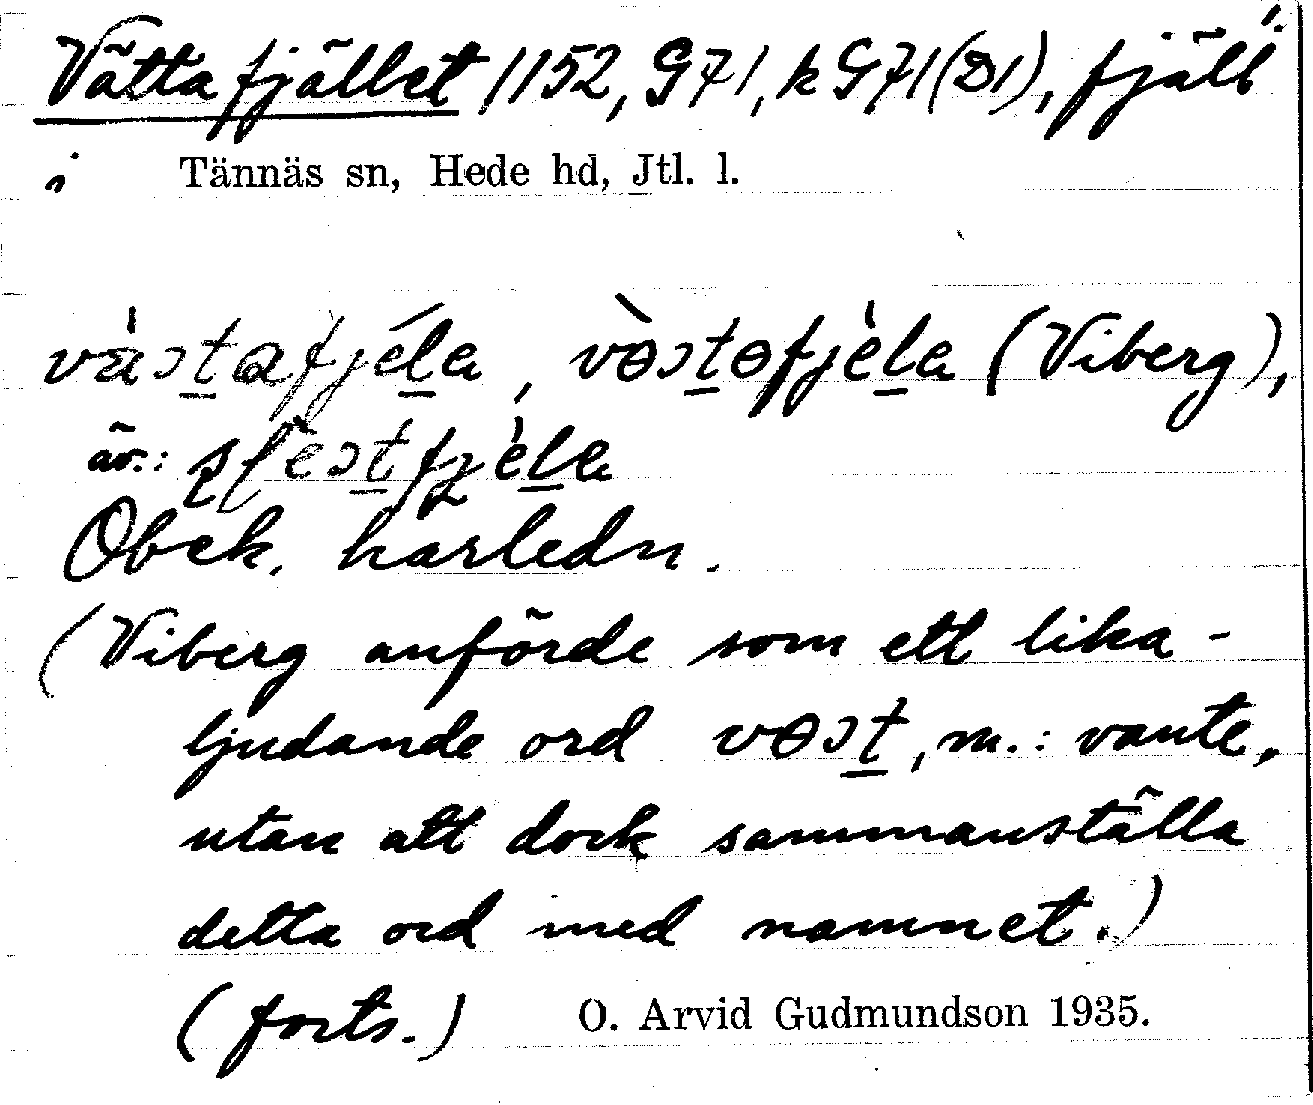 Vättafjället 1152, G71, k G71(D1), fjäll
i Tännäs sn, Hede hd, Jtl. l.
(Viberg),
äv.:
Obek. härledn.
(Viberg anförde som ett lika-
ljudande ord vɵɔt, m.: vante,
utan att dock sammanställa
detta ord med namnet.)
(forts.) O. Arvid Gudmundson 1935.